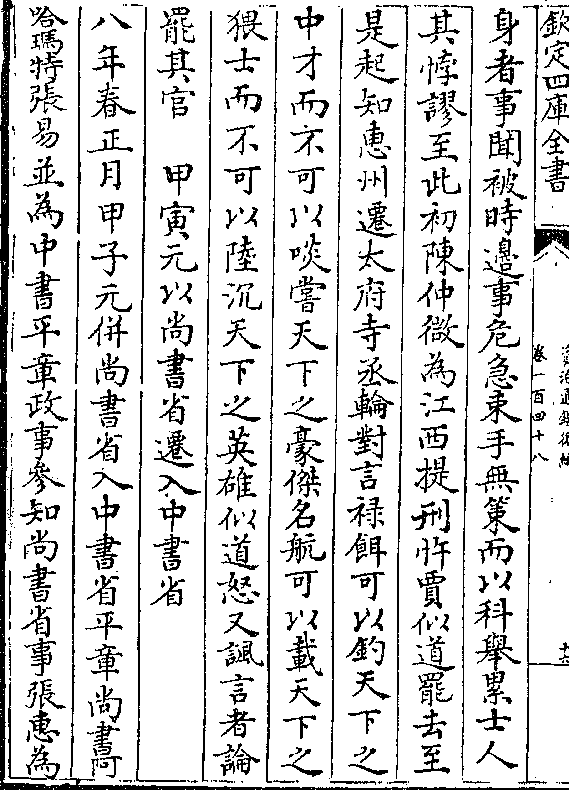 欽定四庫全書
資治通鑑後編
卷一百四十八
十六
身者事聞被時邉事危急束手無䇿而以科舉累士人
其悖謬至此初陳仲微為江西提刑忤賈似道罷去至
是起知惠州遷太府寺丞輪對言禄餌可以釣天下之
中才而不可以啖嘗天下之豪傑名航可以載天下之
猥士而不可以陸沉天下之英雄似道怒又諷言者論
罷其官　甲寅元以尚書省遷入中書省
八年春正月甲子元併尚書省入中書省平章尚書阿
哈瑪特張易並為中書平章政事參知尚書省事張惠為